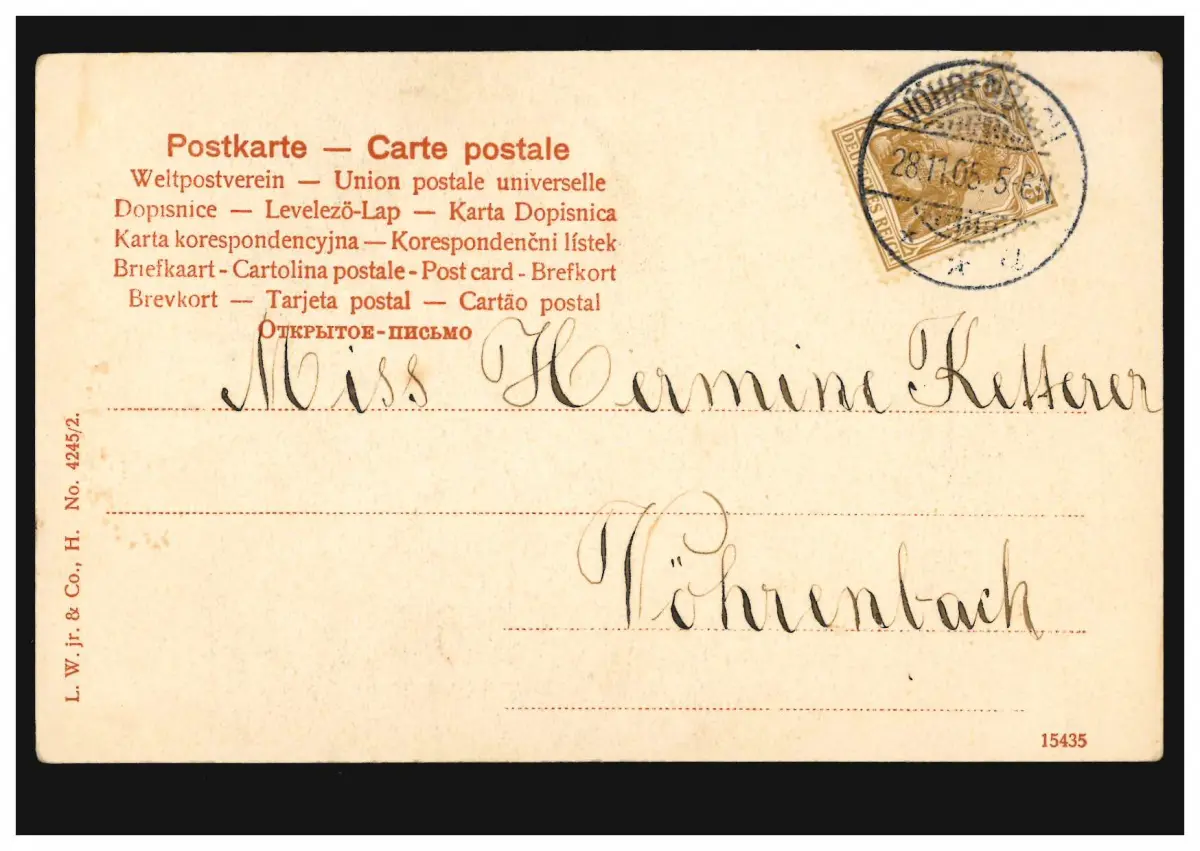 Postkarte — Carte postale
Weltpostverein — Union postale universelle
Dopisnice — Levelező-Lap — Karta Dopisnica
Karta korespondencyjna — Korespondenčni lístek
Briefkaart - Cartolina postale - Post card - Brefkort
Brevkort — Tarjeta postal — Cartão postal
Открытое-письмо
VÖHRENBACH
28.11.05. 5-6N
DEUTSCHES REICH
Miss Hermine Ketterer
Vöhrenbach
L. W. jr. & Co., H. No. 4245/2.
15435